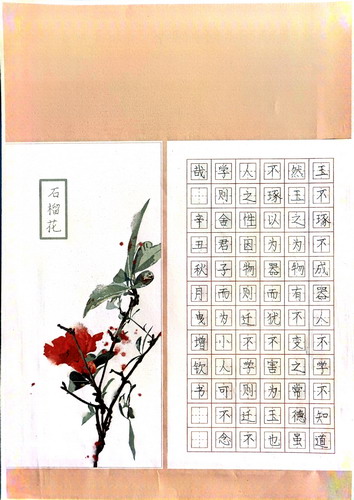 玉不琢不成器人不学不知道
然玉之为物有不变之常德虽
不琢以为器而犹不害为玉也
人之性因物则迁不学则迁不
学则舍君子而为小人可不念
哉 辛丑秋月曳增钦书
石榴花